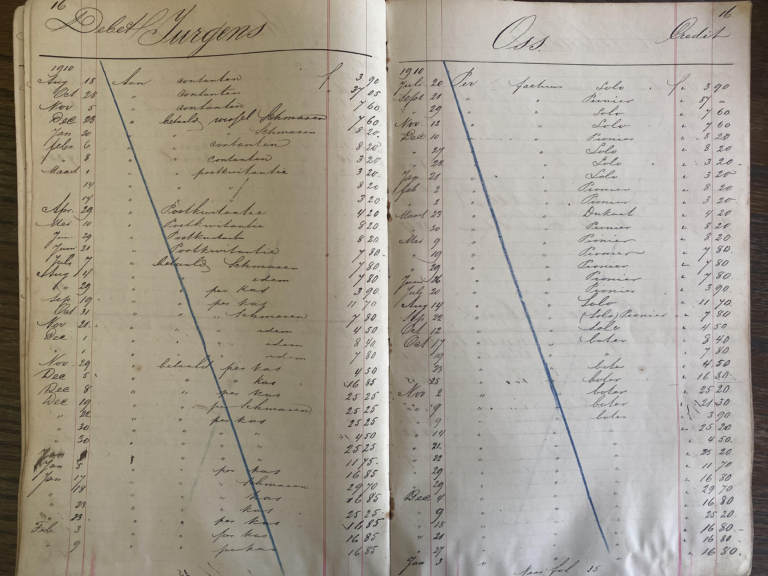 16
Debet Jurgens
1910
Aug 18 Aan contanten f 3 90
Oct 28 " contanten 37 05
Nov 5 " contanten 7 60
Dec 23 " betaald wissel Schmasen 7 60
Jan 20 " Schmasen 8 20
Febr 6 " contanten 8 20
" 8 " contanten 3 20
Maart 1 " postkwitantie 3 20
14 " 8 20
3 20
Apr. 29 " Postkwitantie 4 20
Mei 10 " Postkwitantie 8 20
29 " Postkwitantie 8 20
Juni 20 " Postkwitantie 7 80
Juli 7 " betaald Schmasen 7 80
Aug 4 " idem 7 80
" 29 " per kas 3 90
Sep 19 " per kas 11 70
Oct 31 " Schmasen 7 80
Nov 21 " idem 4 50
Dec 1 " idem 8 40
" " idem 7 80
Nov 29 " betaald per kas 4 50
Dec 5 " kas 16 85
Dec 8 " per kas 25 25
Dec 19 " per Schmasen 25 25
" 22 " per kas 25 25
" 30 " 4 50
" 30 " 25 25
Jan 5 " 11 75
Jan 17 " per kas 16 85
" 18 " Schmasen 29 70
" " kas 16 85
" 23 " kas 16 85
" 23 " per kas 16 85
Feb 3 " per kas 16 85
" 9 " per kas 16 85
16
Oss Credit
1910
Juli 20 Per factuur Solo f 3 90
Sept 21 " Pionier 37 -
" 29 " Solo 7 60
Nov 12 " Solo 7 60
Dec 10 " Pionier 8 20
" 27 " Solo 8 20
" 28 " Solo 3 20
Jan 21 " Solo 3 20
Feb 2 " Pionier 8 20
" 2 " Pionier 3 20
Maart 23 " Dukaat 4 20
" Pionier 8 20
Mei 9 " Pionier 8 20
" 19 " Pionier 7 80
" 29 " Pionier 7 80
Juni 26 " Pionier 7 80
Juli 20 " Pionier 3 90
Aug 14 " Solo 11 70
22 " Solo, Pionier 7 80
Oct 12 " Solo 4 50
Oct 17 " boter 8 40
" 19 " 7 80
" 25 " boter 4 50
" 25 " boter 16 80
Nov 2 " boter 25 20
" 9 " boter 21 30
" 9 " boter 3 90
" 14 " 25 20
" 21 " 4 50
" 22 " 25 20
" 29 " 11 70
" 29 " 16 80
Dec 4 " 29 70
" 9 " 16 80
" 18 " 25 20
" 21 " 16 80
" 27 " 16 80
Jan 3 " 16 80
Naar fol 15